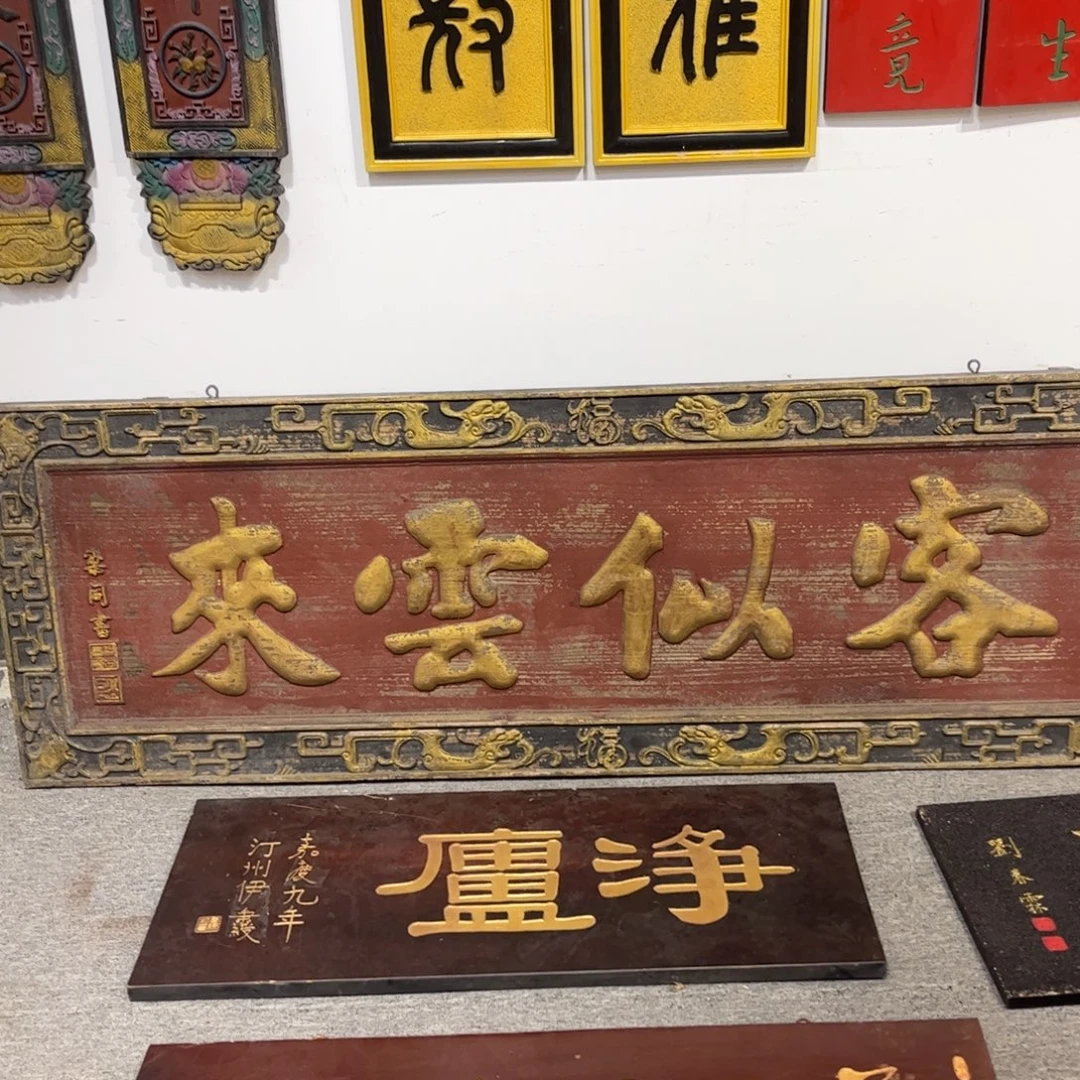 竟
生
雅
福
客似雲來
梁同書
福
淨廬
嘉慶九年
汀州伊秉綬
劉春霖